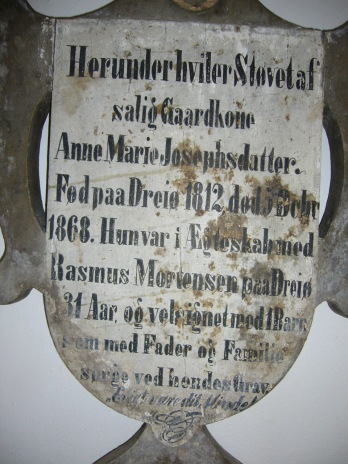 Herunder hviler Støvet af
salig Gaardkone
Anne Marie Josephsdatter.
Fød paa Dreiø 1812, død
1868. Hun var i Ægteskab med
Rasmus Mortensen paa Dreiø
31 Aar, og velsignet med 1 Barn
som med Fader og Familie
sørge ved hendes Grav.